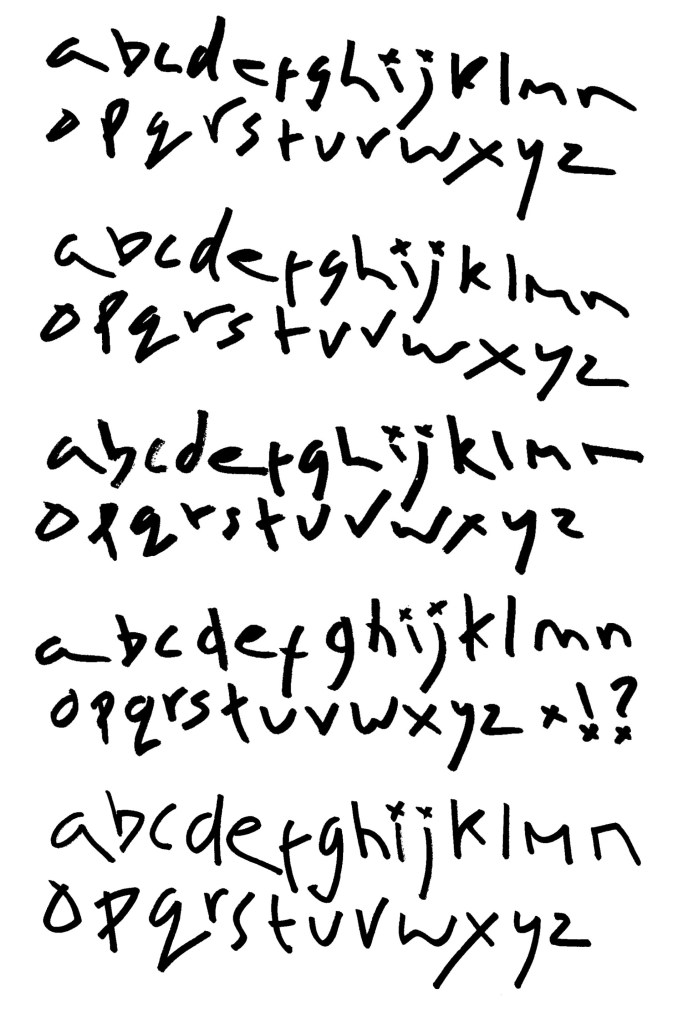 abcdefghijklmn
opqrstuvwxyz
abcdefghijklmn
opqrstuvwxyz
abcdefghijklmn
opqrstuvwxyz
abcdefghijklmn
opqrstuvwxyz x!?
abcdefghijklmn
opqrstuvwxyz